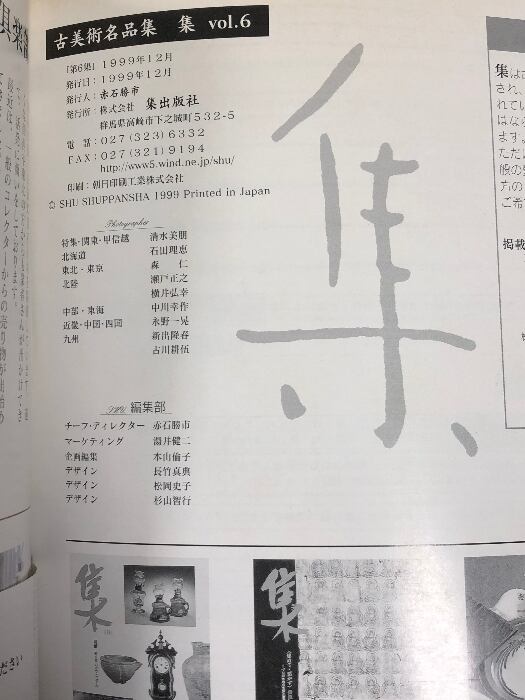 古美術名品集 集 vol.6
「第6集」1999年12月
発行日：1999年12月
発行人：赤石勝市
発行所：株式会社 集出版社
群馬県高崎市下之城町532-5
電 話：027(323)6332
FAX：027(321)9194
http://www5.wind.ne.jp/shu/
印刷：朝日印刷工業株式会社
© SHU SHUPPANSHA 1999 Printed in Japan
Photographer
特集・関東・甲信越 清水美朋
北海道 石田理恵
東北・東京 森 仁
北陸 瀬戸正之
横井弘幸
中部・東海 中川幸作
近畿・中国・四国 永野一晃
九州 新出隆春
古川耕伍
SHU 編集部
チーフ・ディレクター 赤石勝市
マーケティング 湯井健二
企画編集 本山倫子
デザイン 長竹真典
デザイン 松岡史子
デザイン 杉山智行
集
集
集
掲載
ださい